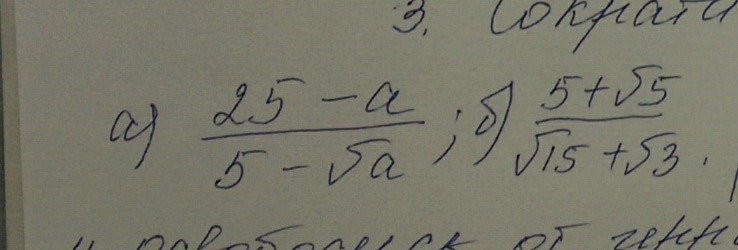 3. Сократи
а) \frac{25 - a}{5 - \sqrt{a}} ; б) \frac{5 + \sqrt{5}}{\sqrt{15} + \sqrt{3}} .
от